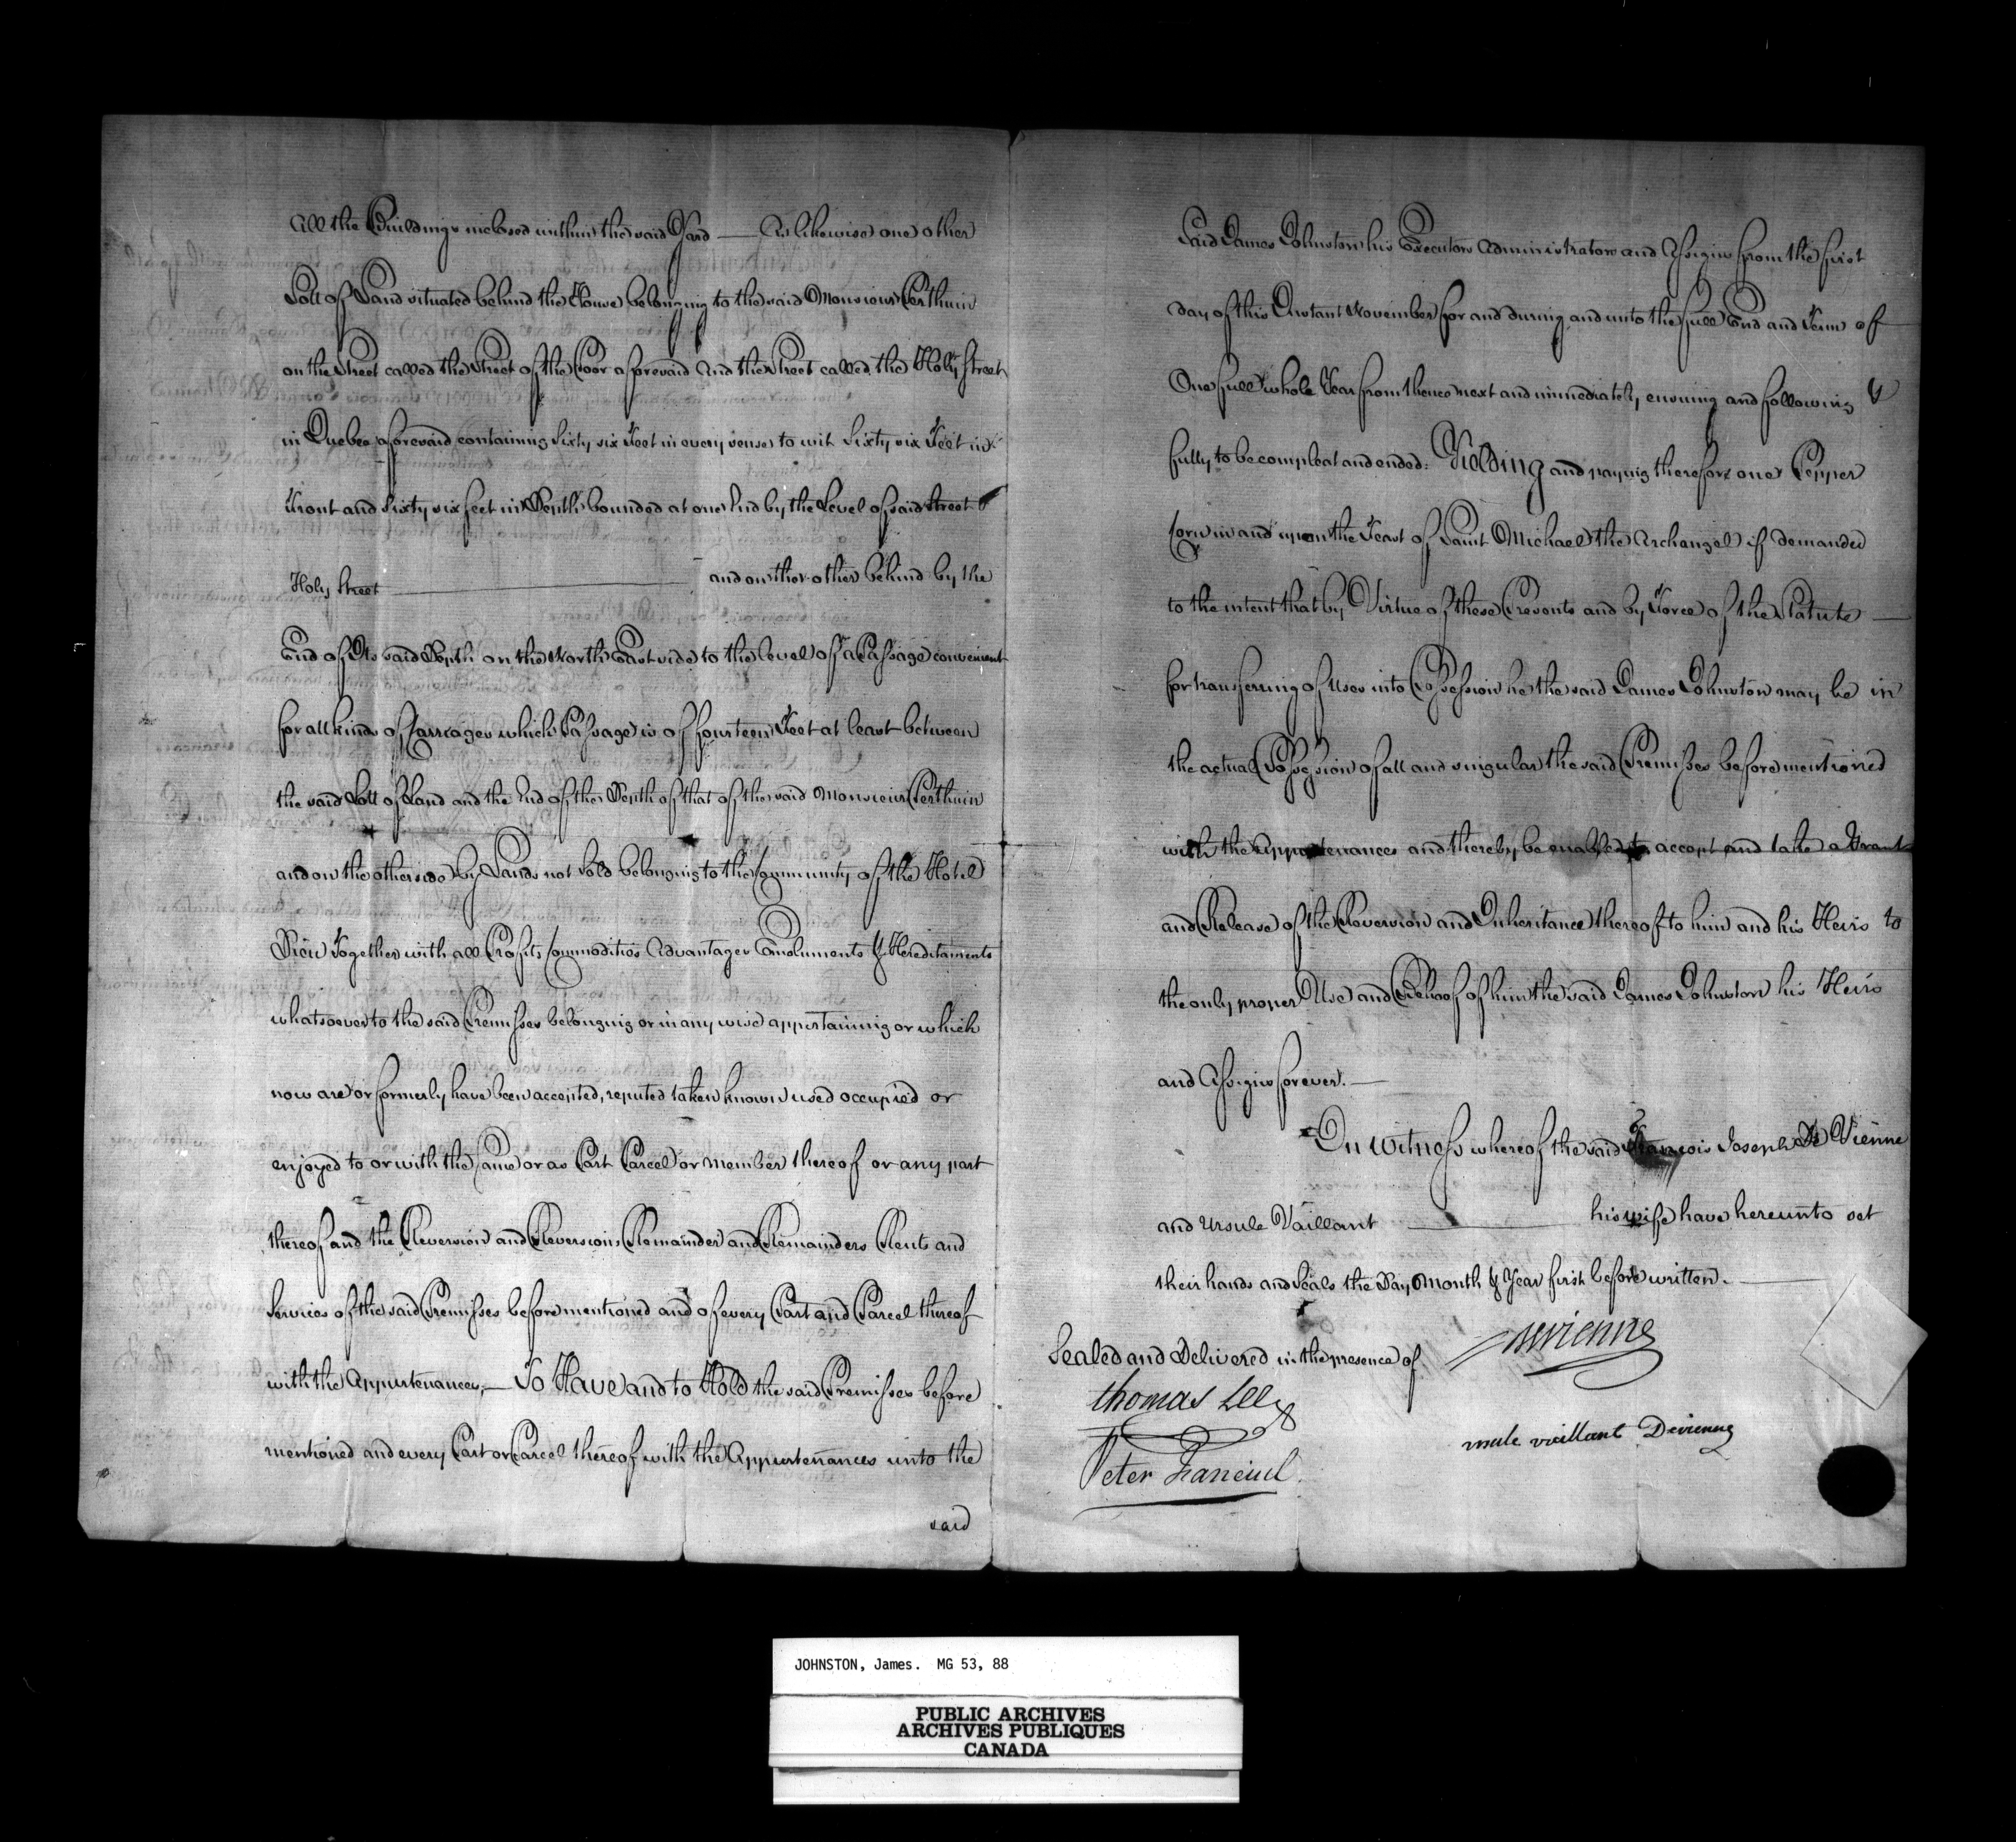 All the Buildings inclosed within the said Yard — As likewise one other
Lott of Land situated behind the House belonging to the said Monsieur Perthuin
on the Street called the Street of the Poor aforesaid And the Street called the Holy Street
in Quebec aforesaid containing Sixty six Feet in every sense to wit Sixty six Feet in
Front and Sixty six feet in Depth bounded at one End by the Level of said Street
Holy Street — and on the other behind by the
End of Its said Depth on the North East side to the level of a Passage convenient
for all kinds of Carriages which Passage is of fourteen Feet at least between
the said Lott of Land and the End of the Depth of that of the said Monsieur Perthuin
and on the other side by Lands not Sold belonging to the Community of the Hotel
Dieu Together with all Profits Commodities Advantages Emoluments & Hereditaments
whatsoever to the said Premisses belonging or in any wise appertaining or which
now are or formerly have been accepted, reputed taken known used occupied or
enjoyed to or with the Same or as Part Parcel or Member thereof or any part
thereof and the Reversion and Reversions Remainder and Remainders Rents and
Services of the said Premisses before mentioned and of every Part and Parcel thereof
with the Appurtenances, — To Have and to Hold the said Premisses before
mentioned and every Part or Parcel thereof with the Appurtenances unto the
said
Said James Johnston his Executors Administrators and Assigns from the first
day of this Instant November for and during and unto the full End and Term of
One full whole Year from thence next and immediately ensuing and following &
fully to be compleat and ended: Yielding and paying therefore one Pepper
Corn in and upon the Feast of Saint Michael the Archangel if demanded
to the intent that by Virtue of these Presents and by Force of the Statute —
for transferring of Uses into Possession he the said James Johnston may be in
the actual Possession of all and singular the said Premisses before mentioned
with the Appurtenances and thereby be enabled to accept and take a Grant
and Release of the Reversion and Inheritance thereof to him and his Heirs to
the only proper Use and Behoof of him the said James Johnston his Heirs
and Assigns forever. —
In Witness whereof the said François Joseph De Vienne
and Ursule Vaillant — his wife have hereunto set
their hands and Seals the Day Month & Year first before written. —
Sealed and Delivered in the presence of
Devienne
thomas Lee
Peter Faneuil
vaillant Devienne
JOHNSTON, James. MG 53, 88
PUBLIC ARCHIVES
ARCHIVES PUBLIQUES
CANADA